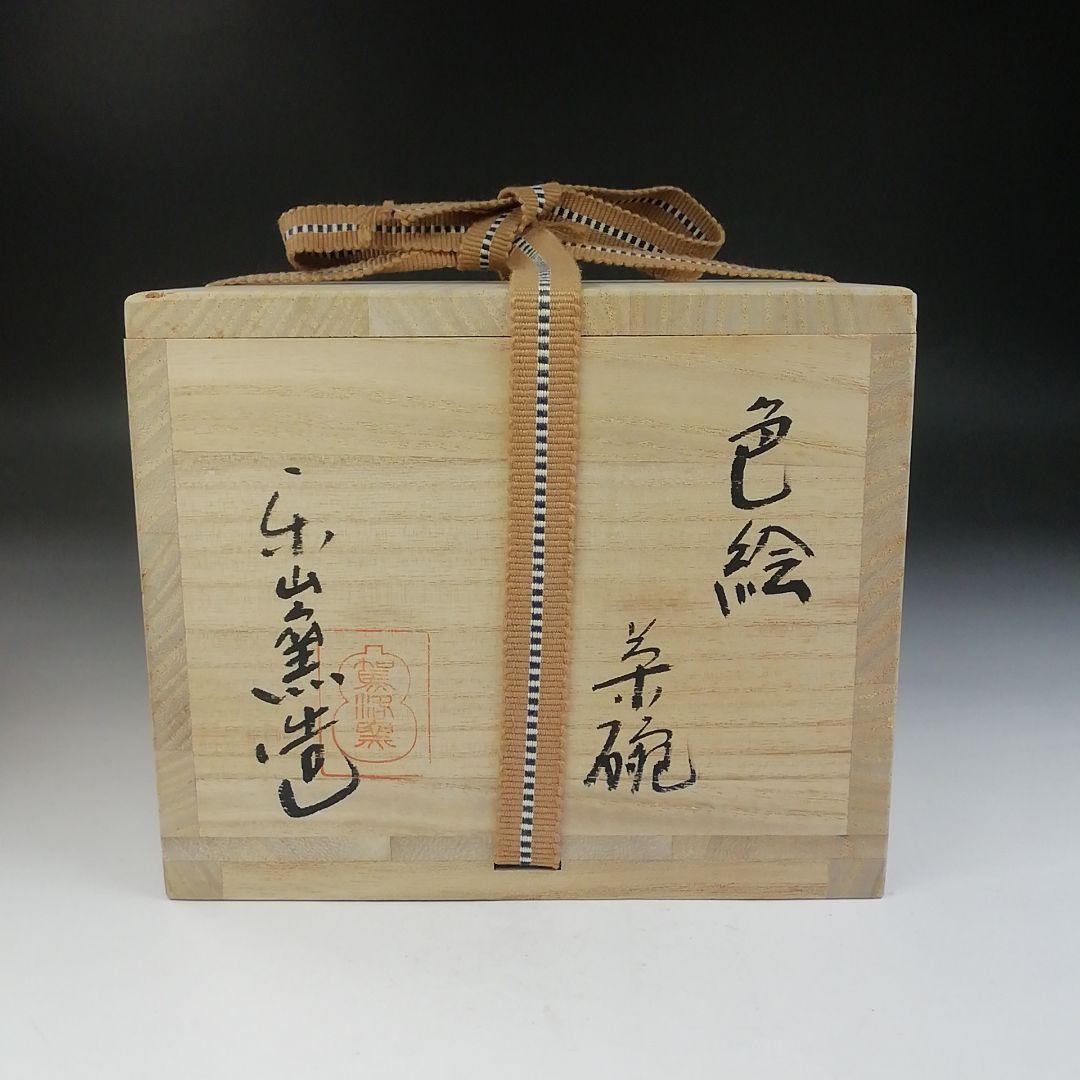 色絵
茶碗
楽山窯造